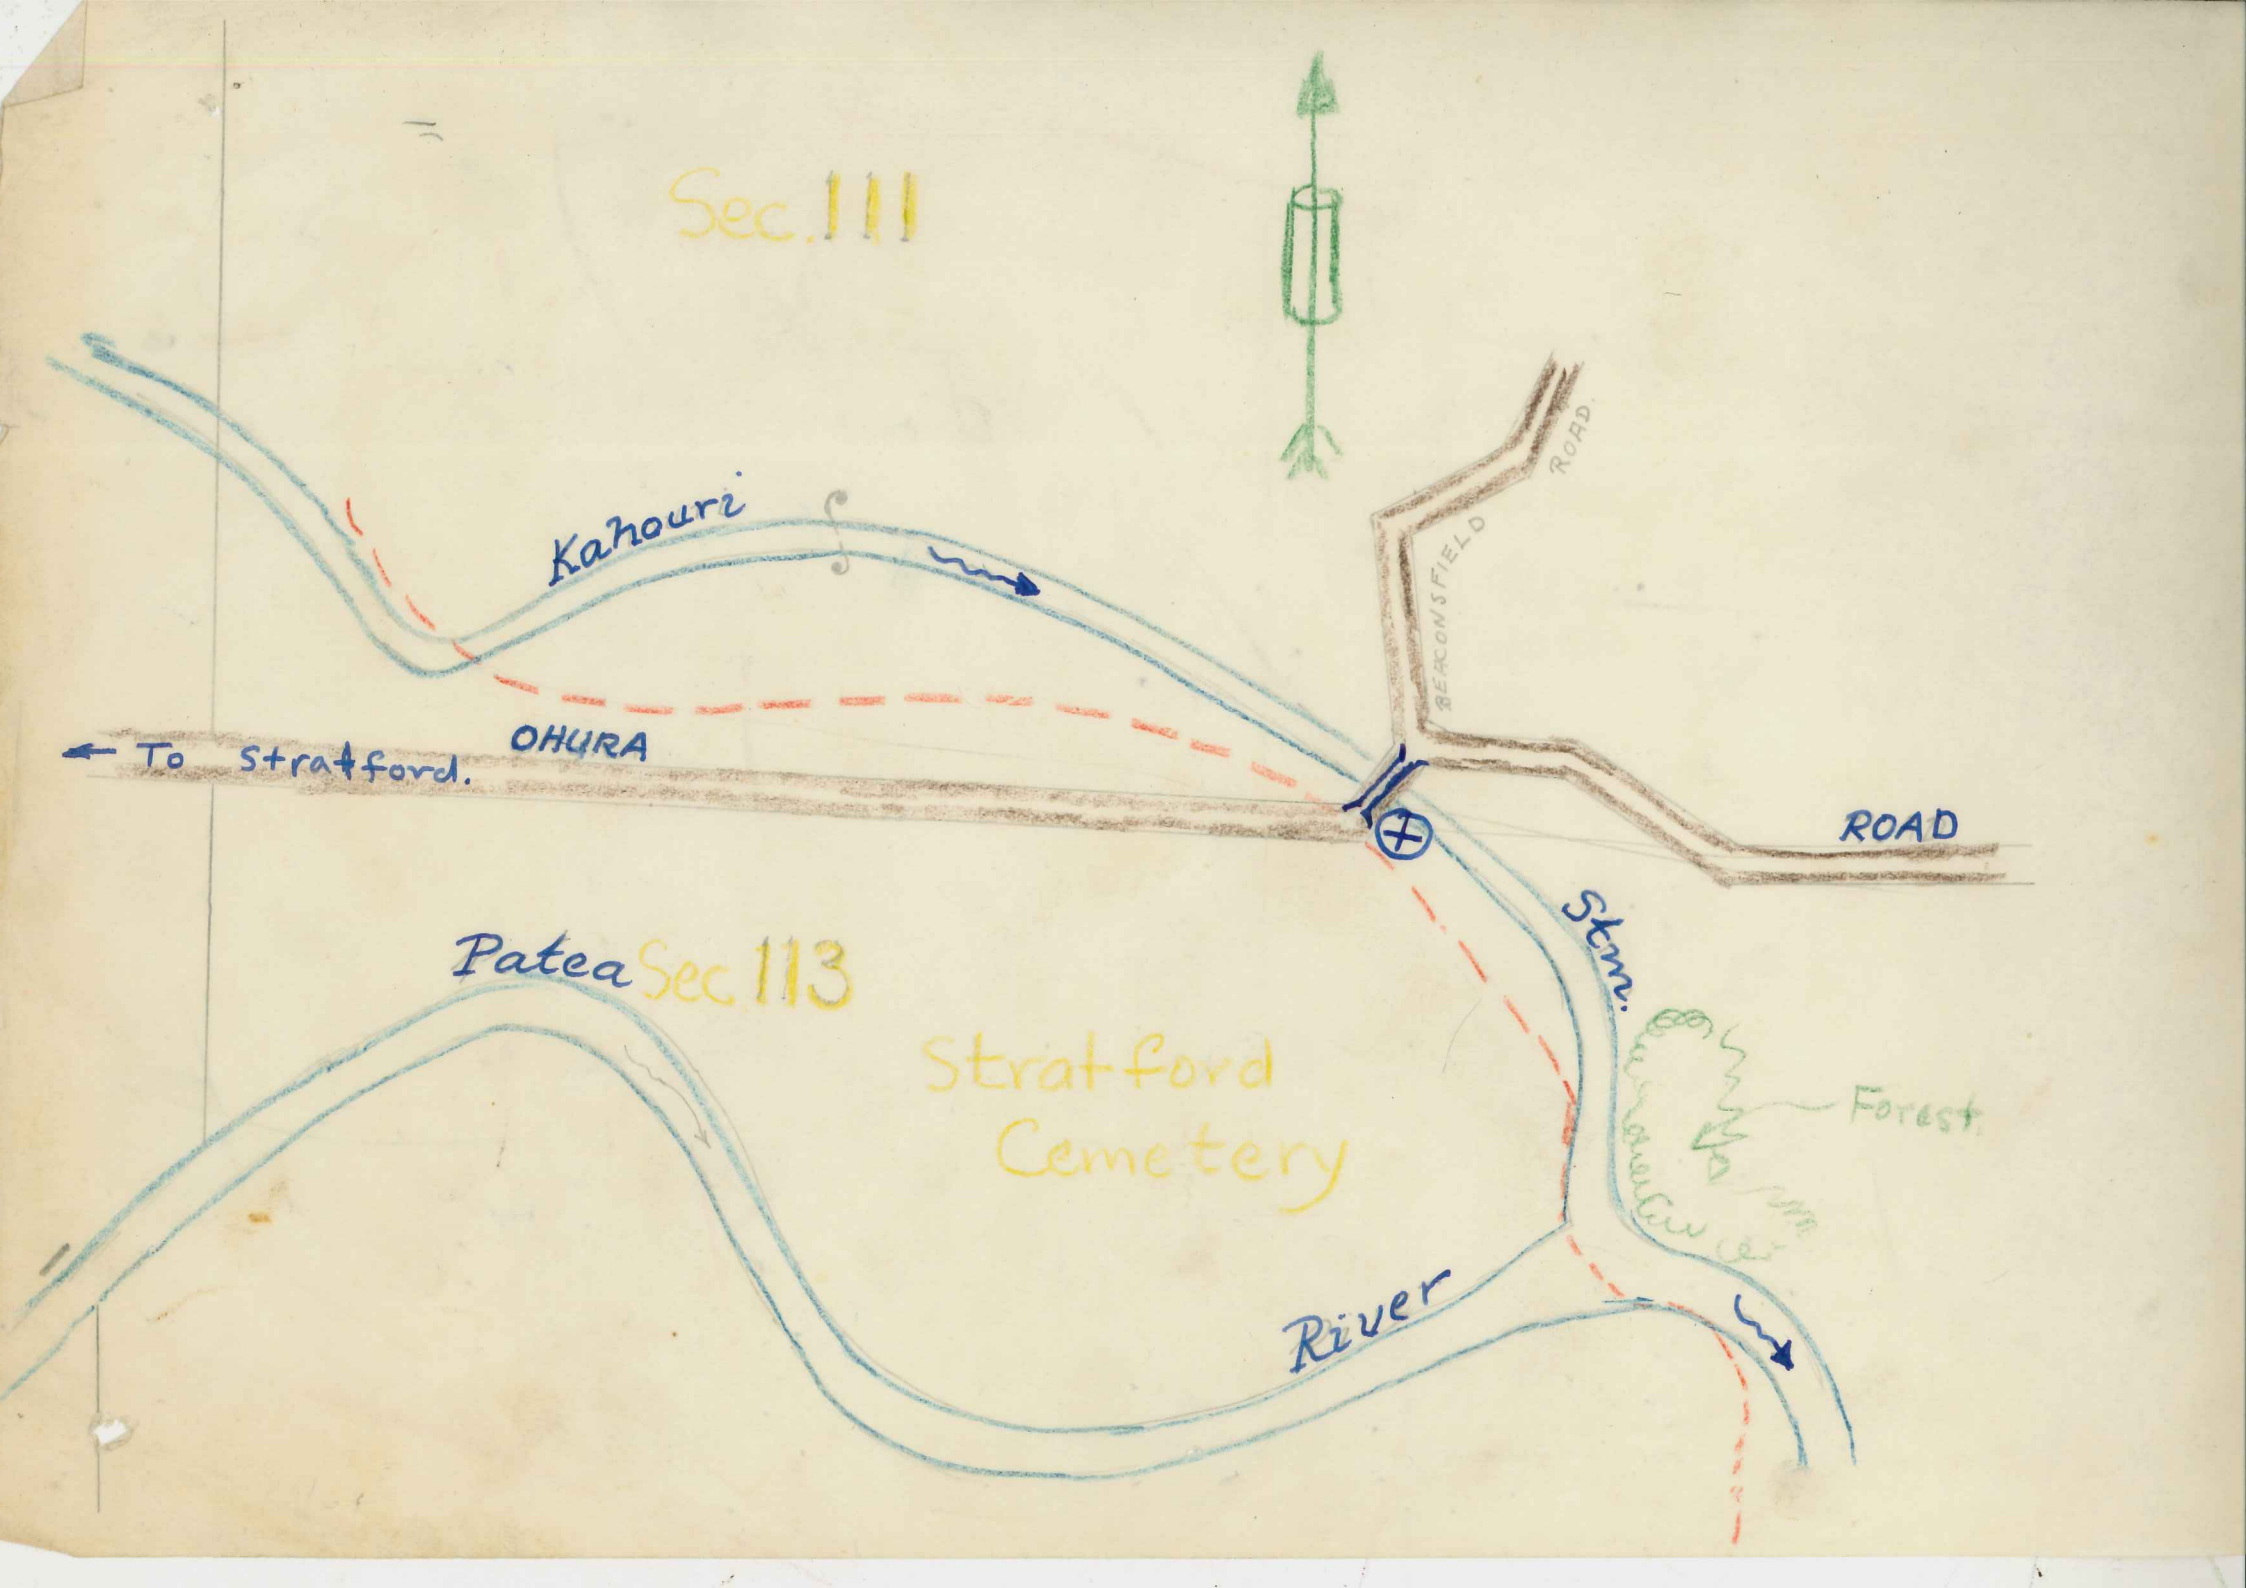 Sec. 111
ROAD
Kahouri
BEACONSFIELD
OHURA
To Stratford.
ROAD
Stm.
Patea
Sec. 113
Stratford
Cemetery
Forest.
River